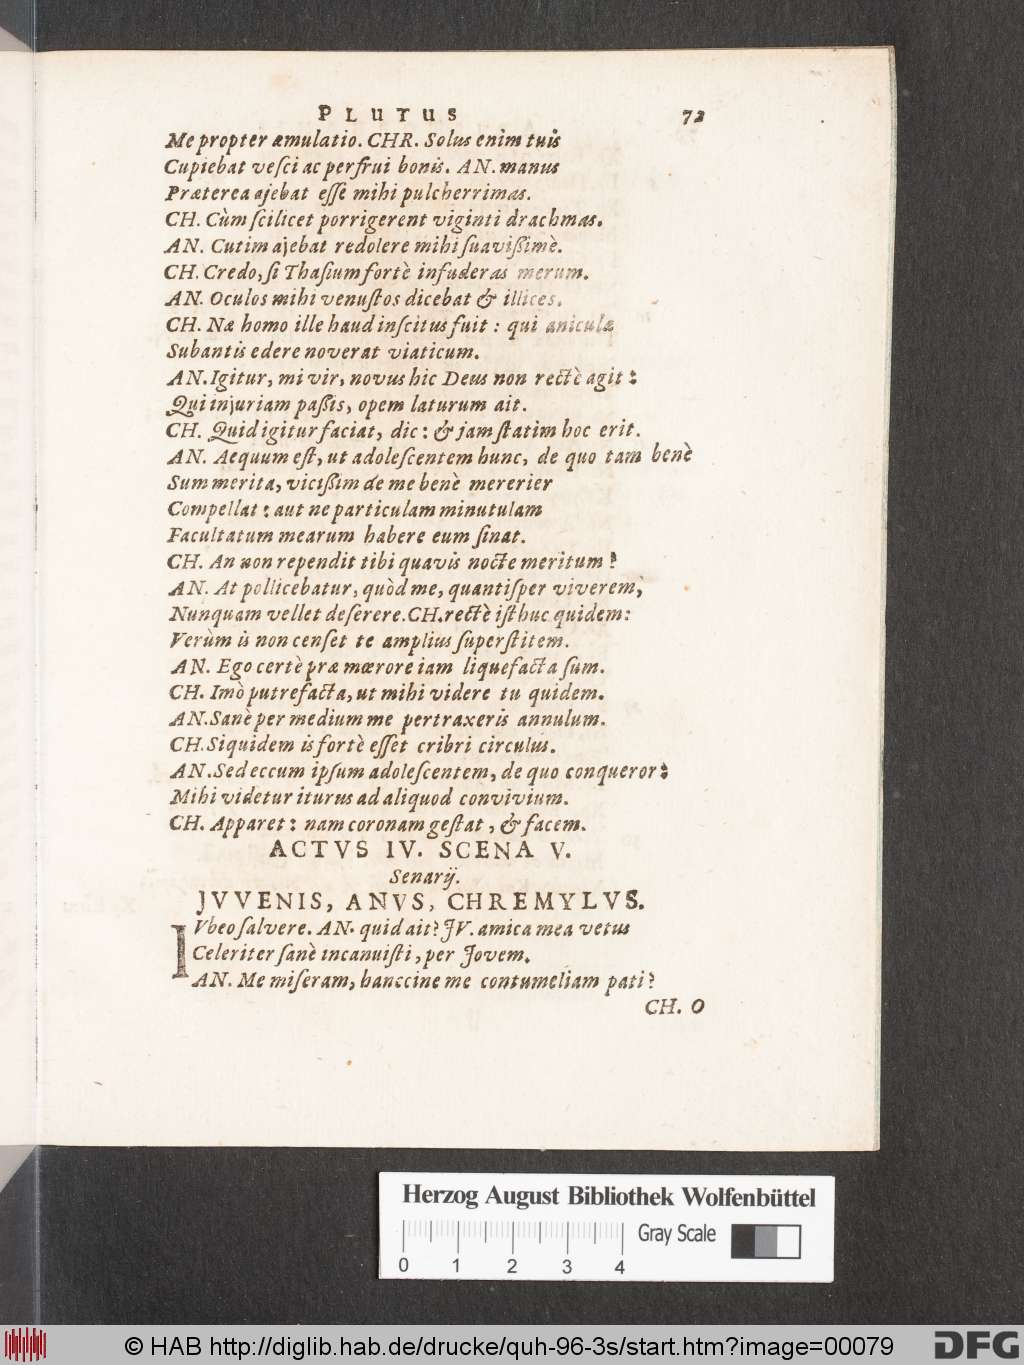 PLUTUS 73
Me propter æmulatio. CHR. Solus enim tuis
Cupiebat veſci ac perfrui bonis. AN. manus
Præterea ajebat eſſe mihi pulcherrimas.
CH. Cùm ſcilicet porrigerent viginti drachmas.
AN. Cutim ajebat redolere mihi ſuaviſſimè.
CH. Credo, ſi Thaſium fortè infuderas merum.
AN. Oculos mihi venuſtos dicebat & illices.
CH. Næ homo ille haud inſcitus fuit : qui aniculæ
Subantis edere noverat viaticum.
AN. Igitur, mi vir, novus hic Deus non rectè agit :
Qui injuriam paſſis, opem laturum ait.
CH. Quid igitur faciat, dic : & jam ſtatim hoc erit.
AN. Aequum eſt, ut adoleſcentem hunc, de quo tam benè
Sum merita, viciſſim de me benè mererier
Compellat : aut ne particulam minutulam
Facultatum mearum habere eum ſinat.
CH. An non rependit tibi quavis nocte meritum ?
AN. At pollicebatur, quòd me, quantiſper viverem,
Nunquam vellet deſerere. CH. rectè iſthuc quidem:
Verùm is non cenſet te amplius ſuperſtitem.
AN. Ego certè præ mœrore iam liquefacta ſum.
CH. Imò putrefacta, ut mihi videre tu quidem.
AN. Sanè per medium me pertraxeris annulum.
CH. Siquidem is fortè eſſet cribri circulus.
AN. Sed eccum ipſum adoleſcentem, de quo conqueror :
Mihi videtur iturus ad aliquod convivium.
CH. Apparet : nam coronam geſtat, & facem.
ACTVS IV. SCENA V.
Senarij.
JVVENIS, ANVS, CHREMYLVS.
IVbeo ſalvere. AN. quid ait? JV. amica mea vetus
Celeriter ſanè incanuiſti, per Jovem.
AN. Me miſeram, hanccine me contumeliam pati?
CH. O
Herzog August Bibliothek Wolfenbüttel
Gray Scale
0 1 2 3 4
© HAB http://diglib.hab.de/drucke/quh-96-3s/start.htm?image=00079
DFG